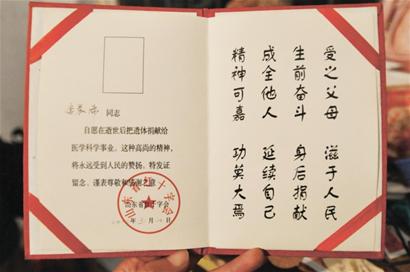 同志
自愿在逝世后把遗体捐献给
医学科学事业。这种高尚的精神,
将永远受到人民的赞扬。特发证
留念,谨表尊敬和感谢之意
山东省红十字会
年 月 日
山东省红十字会
受之父母 滋于人民
生前奋斗 身后捐献
成全他人 延续自己
精神可嘉 功莫大焉